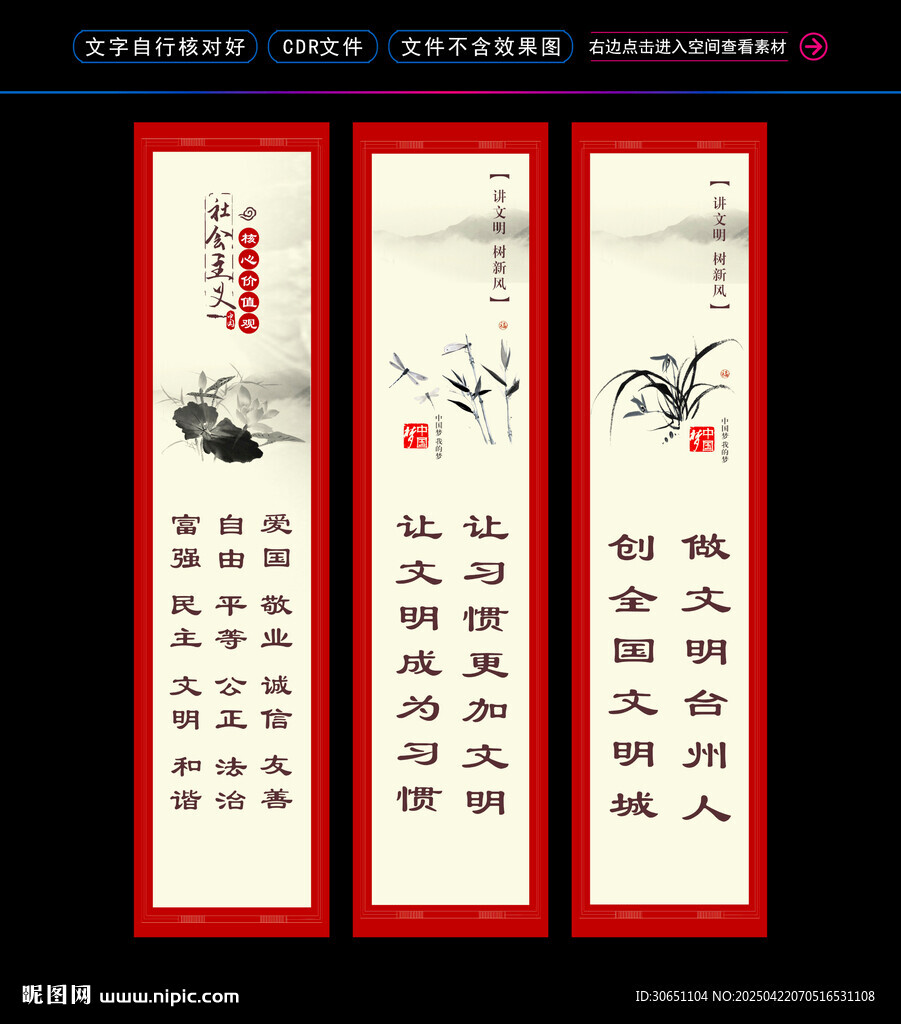 文字自行核对好
CDR文件
文件不含效果图
右边点击进入空间查看素材
社会主义
核心价值观
中国
富强 民主 文明 和谐
自由 平等 公正 法治
爱国 敬业 诚信 友善
【讲文明 树新风】
福
中国梦
中国梦 我的梦
让文明成为习惯
让习惯更加文明
【讲文明 树新风】
福
中国梦
中国梦 我的梦
做文明台州人
创全国文明城
昵图网 www.nipic.com
ID:30651104 NO:20250422070516531108